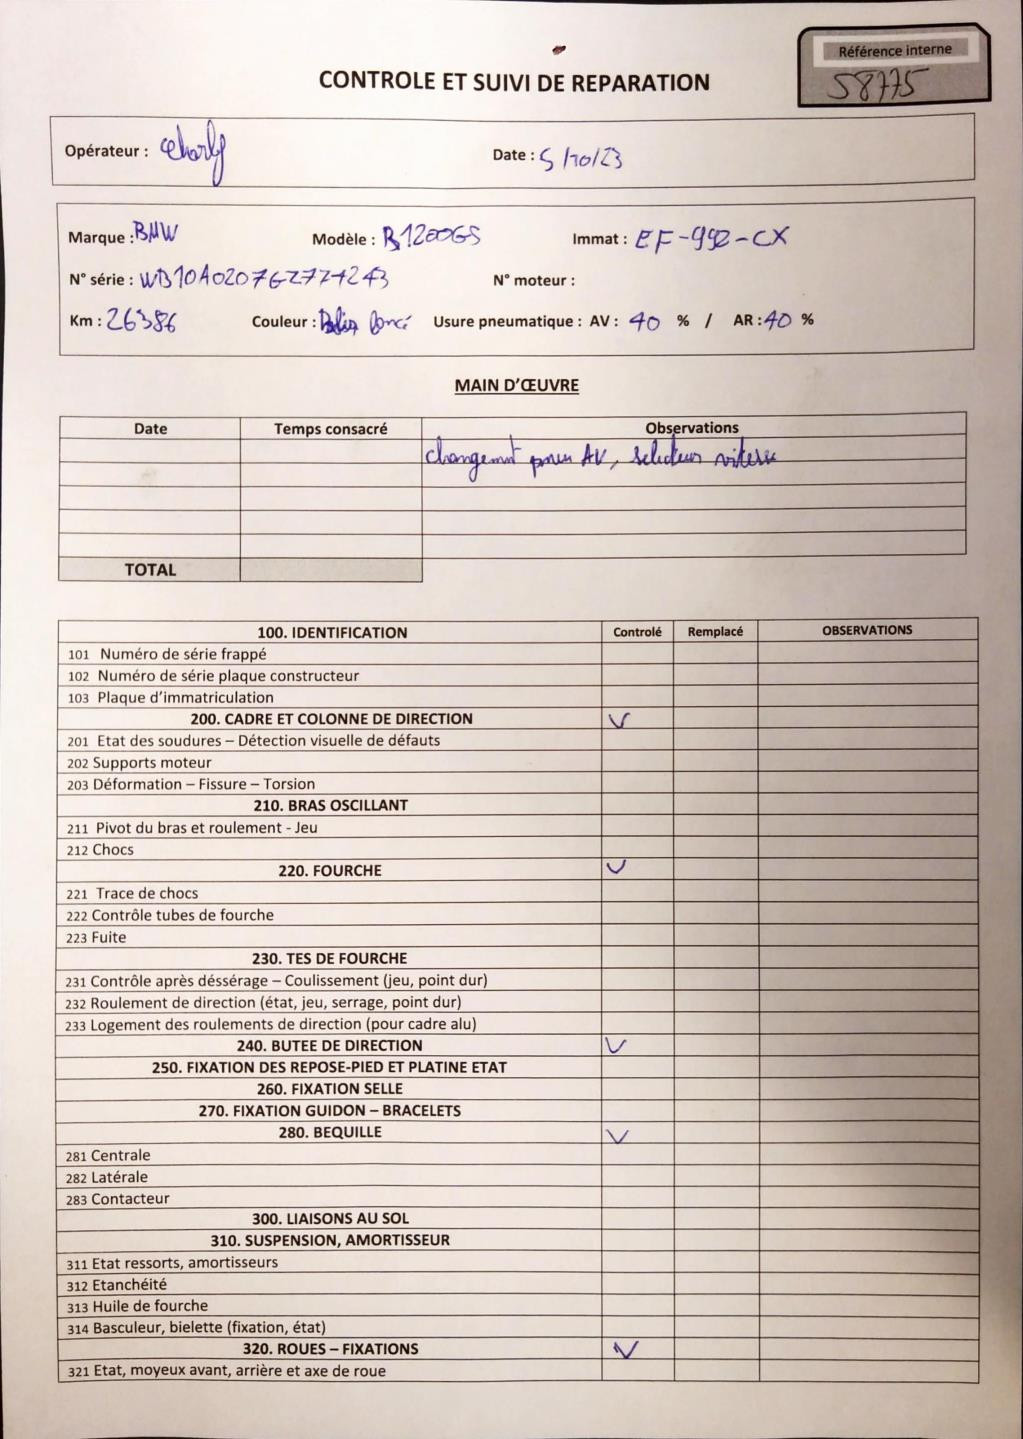 Référence interne
58775
CONTROLE ET SUIVI DE REPARATION
Opérateur : Charly Date : 5/10/23
Marque : BMW Modèle : R1200GS Immat : EF-992-CX
N° série : WB10A0207GZ777243 N° moteur :
Km : 26386 Couleur : foncé Usure pneumatique : AV : 40 % / AR : 40 %
MAIN D'ŒUVRE
Date Temps consacré Observations
changemnt pneu AV, selecteur vitesse
TOTAL
100. IDENTIFICATION Controlé Remplacé OBSERVATIONS
101 Numéro de série frappé
102 Numéro de série plaque constructeur
103 Plaque d'immatriculation
200. CADRE ET COLONNE DE DIRECTION V
201 Etat des soudures – Détection visuelle de défauts
202 Supports moteur
203 Déformation – Fissure – Torsion
210. BRAS OSCILLANT
211 Pivot du bras et roulement - Jeu
212 Chocs
220. FOURCHE V
221 Trace de chocs
222 Contrôle tubes de fourche
223 Fuite
230. TES DE FOURCHE
231 Contrôle après déssérage – Coulissement (jeu, point dur)
232 Roulement de direction (état, jeu, serrage, point dur)
233 Logement des roulements de direction (pour cadre alu)
240. BUTEE DE DIRECTION V
250. FIXATION DES REPOSE-PIED ET PLATINE ETAT
260. FIXATION SELLE
270. FIXATION GUIDON – BRACELETS
280. BEQUILLE V
281 Centrale
282 Latérale
283 Contacteur
300. LIAISONS AU SOL
310. SUSPENSION, AMORTISSEUR
311 Etat ressorts, amortisseurs
312 Etanchéité
313 Huile de fourche
314 Basculeur, bielette (fixation, état)
320. ROUES – FIXATIONS V
321 Etat, moyeux avant, arrière et axe de roue